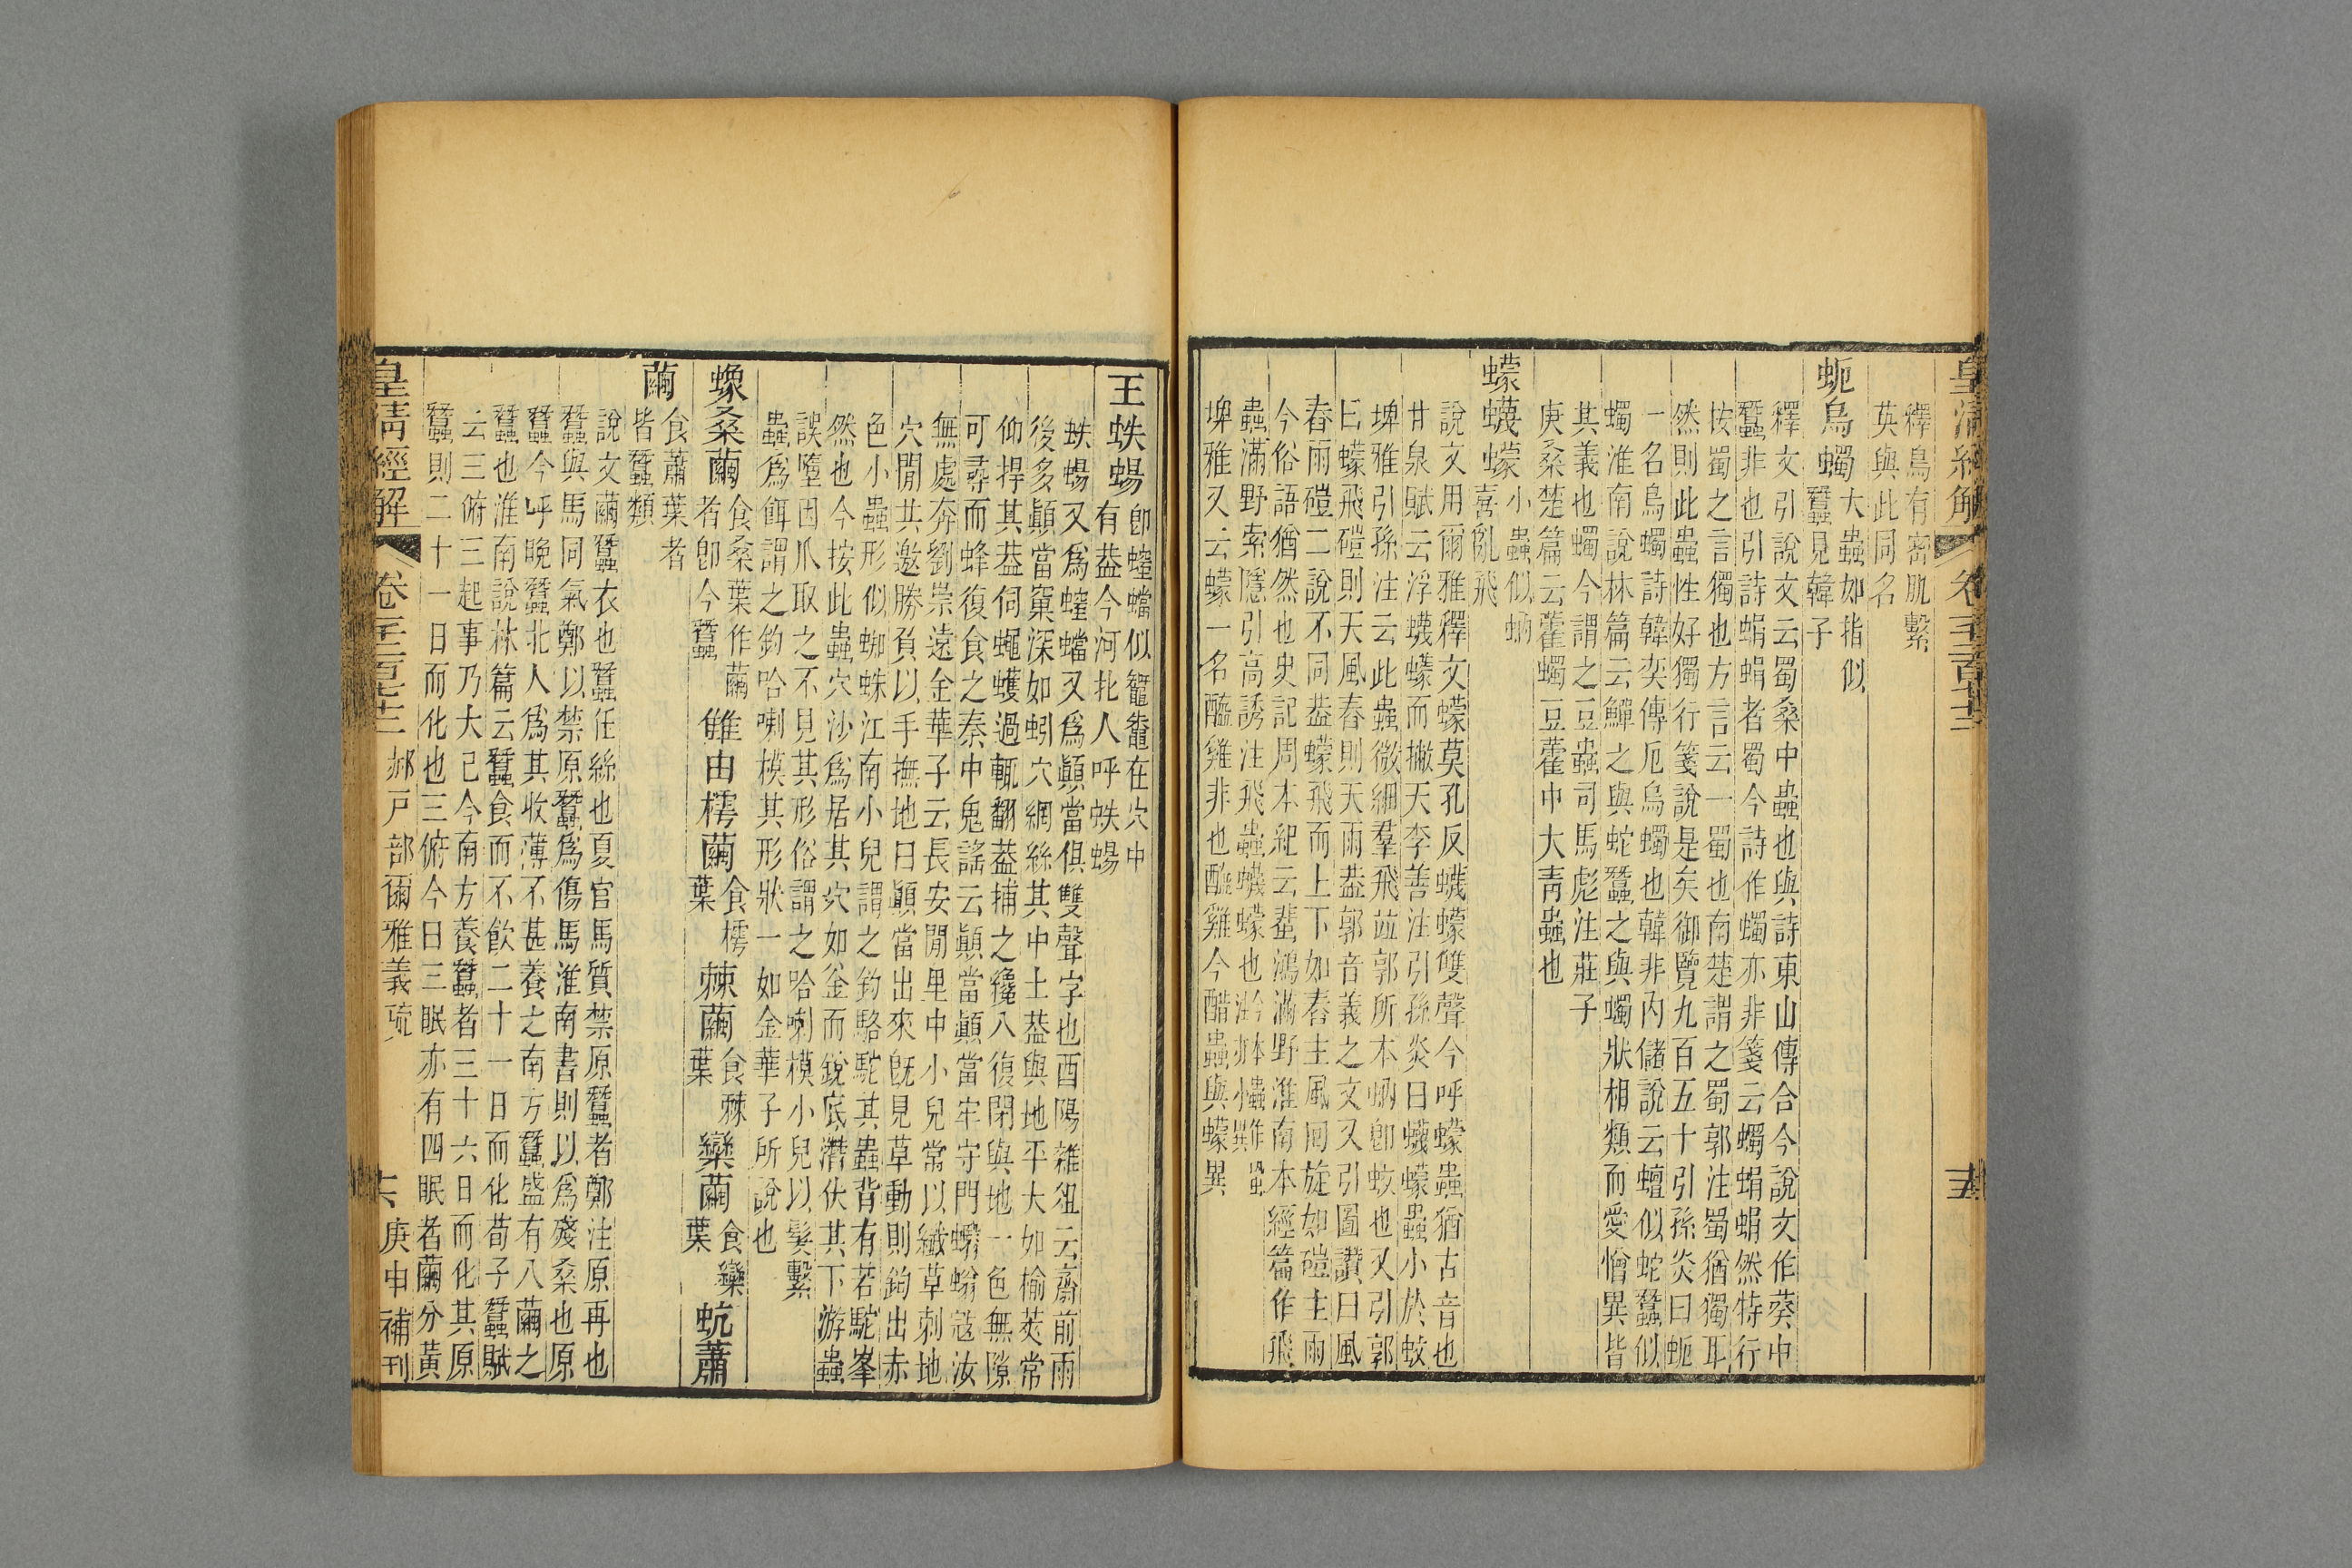 皇清經解 卷千二百七十三
釋鳥有密肌繫
英與此同名
蚅烏蠋大蟲如指似
蠶見韓子
釋文引說文云蜀桑中蟲也與詩東山傳合今說文作葵中
蠶非也引詩蜎蜎者蜀今詩作蠋亦非箋云蠋蜎蜎然特行
按蜀之言獨也方言云一蜀也南楚謂之蜀郭注蜀猶獨耳
然則此蟲性好獨行箋說是矣御覽九百五十引孫炎曰蚅
一名烏蠋詩韓奕傳厄烏蠋也韓非內儲說云蟺似蛇蠶似
蠋淮南說林篇云鱓之與蛇蠶之與蠋狀相類而愛憎異皆
其義也蠋今謂之豆蟲司馬彪注莊子
庚桑楚篇云藿蠋豆藿中大青蟲也
蠓蠛蠓小蟲似蚋
喜亂飛
說文用爾雅釋文蠓莫孔反蠛蠓雙聲今呼蠓蟲猶古音也
甘泉賦云浮蠛蠓而撇天李善注引孫炎曰蠛蠓蟲小於蚊
埤雅引孫注云此蟲微細羣飛茲郭所本蚋卽蚊也又引郭
曰蠓飛磑則天風舂則天雨葢郭音義之文又引圖讚曰風
舂雨磑二說不同葢蠓飛而上下如舂主風回旋如磑主雨
今俗語猶然也史記周本紀云蜚鴻滿野淮南本經篇作飛
蟲滿野索隱引高誘注飛蟲蠛蠓也
埤雅又云蠓一名醯雞非也醯雞今醋蟲與蠓異
王蛈蜴卽螲蟷似鼅鼄在穴中
有葢今河北人呼蛈蜴
蛈蜴又爲螲蟷又爲顚當俱雙聲字也酉陽雜俎云齋前雨
後多顚當窠深如蚓穴網絲其中土葢與地平大如榆莢常
仰捍其葢伺蠅蠖過輒翻葢捕之纔入復閉與地一色無隙
可尋而蜂復食之秦中鬼謠云顚當顚當牢守門蠮螉寇汝
無處奔劉崇遠金華子云長安閒里中小兒常以纖草刺地
穴閒共邀勝負以手撫地曰顚當出來旣見草動則鉤出赤
色小蟲形似蜘蛛江南小兒謂之鉤駱駝其蟲背有若駝峯
然也今按此蟲穴沙爲居其穴如釜而銳底潛伏其下游蟲
誤墮因爪取之不見其形俗謂之哈喇模小兒以髮繫
蟲爲餌謂之釣哈喇模其形狀一如金華子所說也
蟓桑繭食桑葉作繭
者卽今蠶
雔由樗繭食樗
葉
棘繭食棘
葉
欒繭食欒
葉
蚢蕭
繭食蕭葉者
皆蠶類
說文繭蠶衣也蠶任絲也夏官馬質禁原蠶者鄭注原再也
蠶與馬同氣鄭以禁原蠶爲傷馬淮南書則以爲殘桑也原
蠶今呼晚蠶北人爲其收薄不甚養之南方蠶盛有八繭之
蠶也淮南說林篇云蠶食而不飮二十一日而化荀子蠶賦
云三俯三起事乃大已今南方養蠶者三十六日而化其原
蠶則二十一日而化也三俯今曰三眠亦有四眠者繭分黃
皇清經解 卷千二百七十三 郝戸部爾雅義疏 十六 庚申補刊